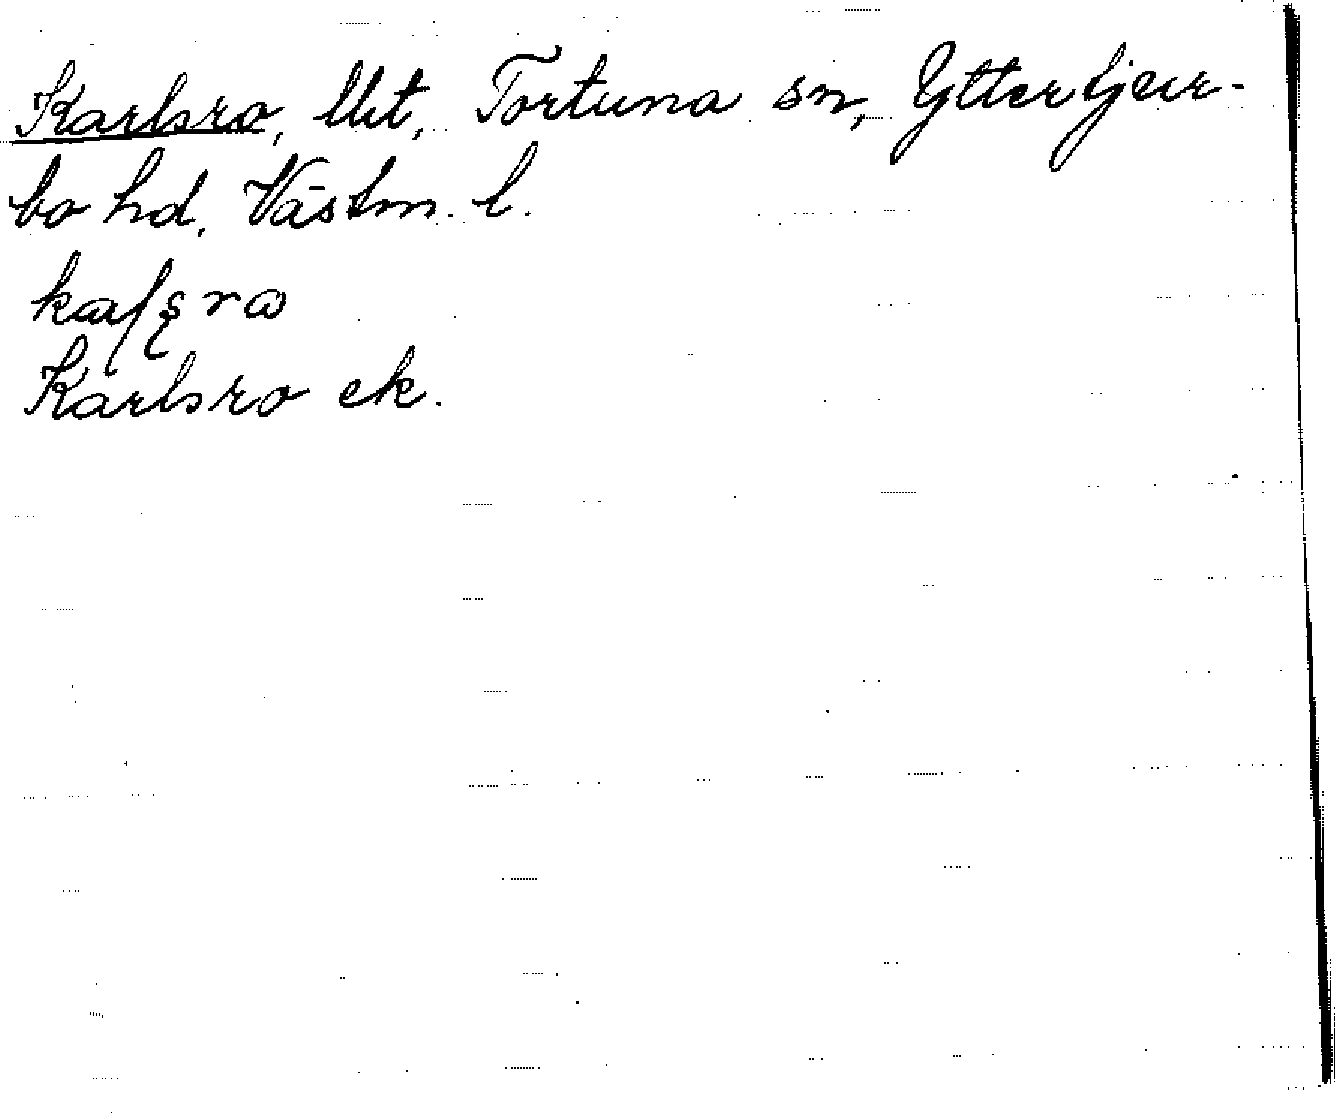 Karlsro, lht, Tortuna sn, Yttertjur-
bo hd, Västm. l.
Karlsro ek.